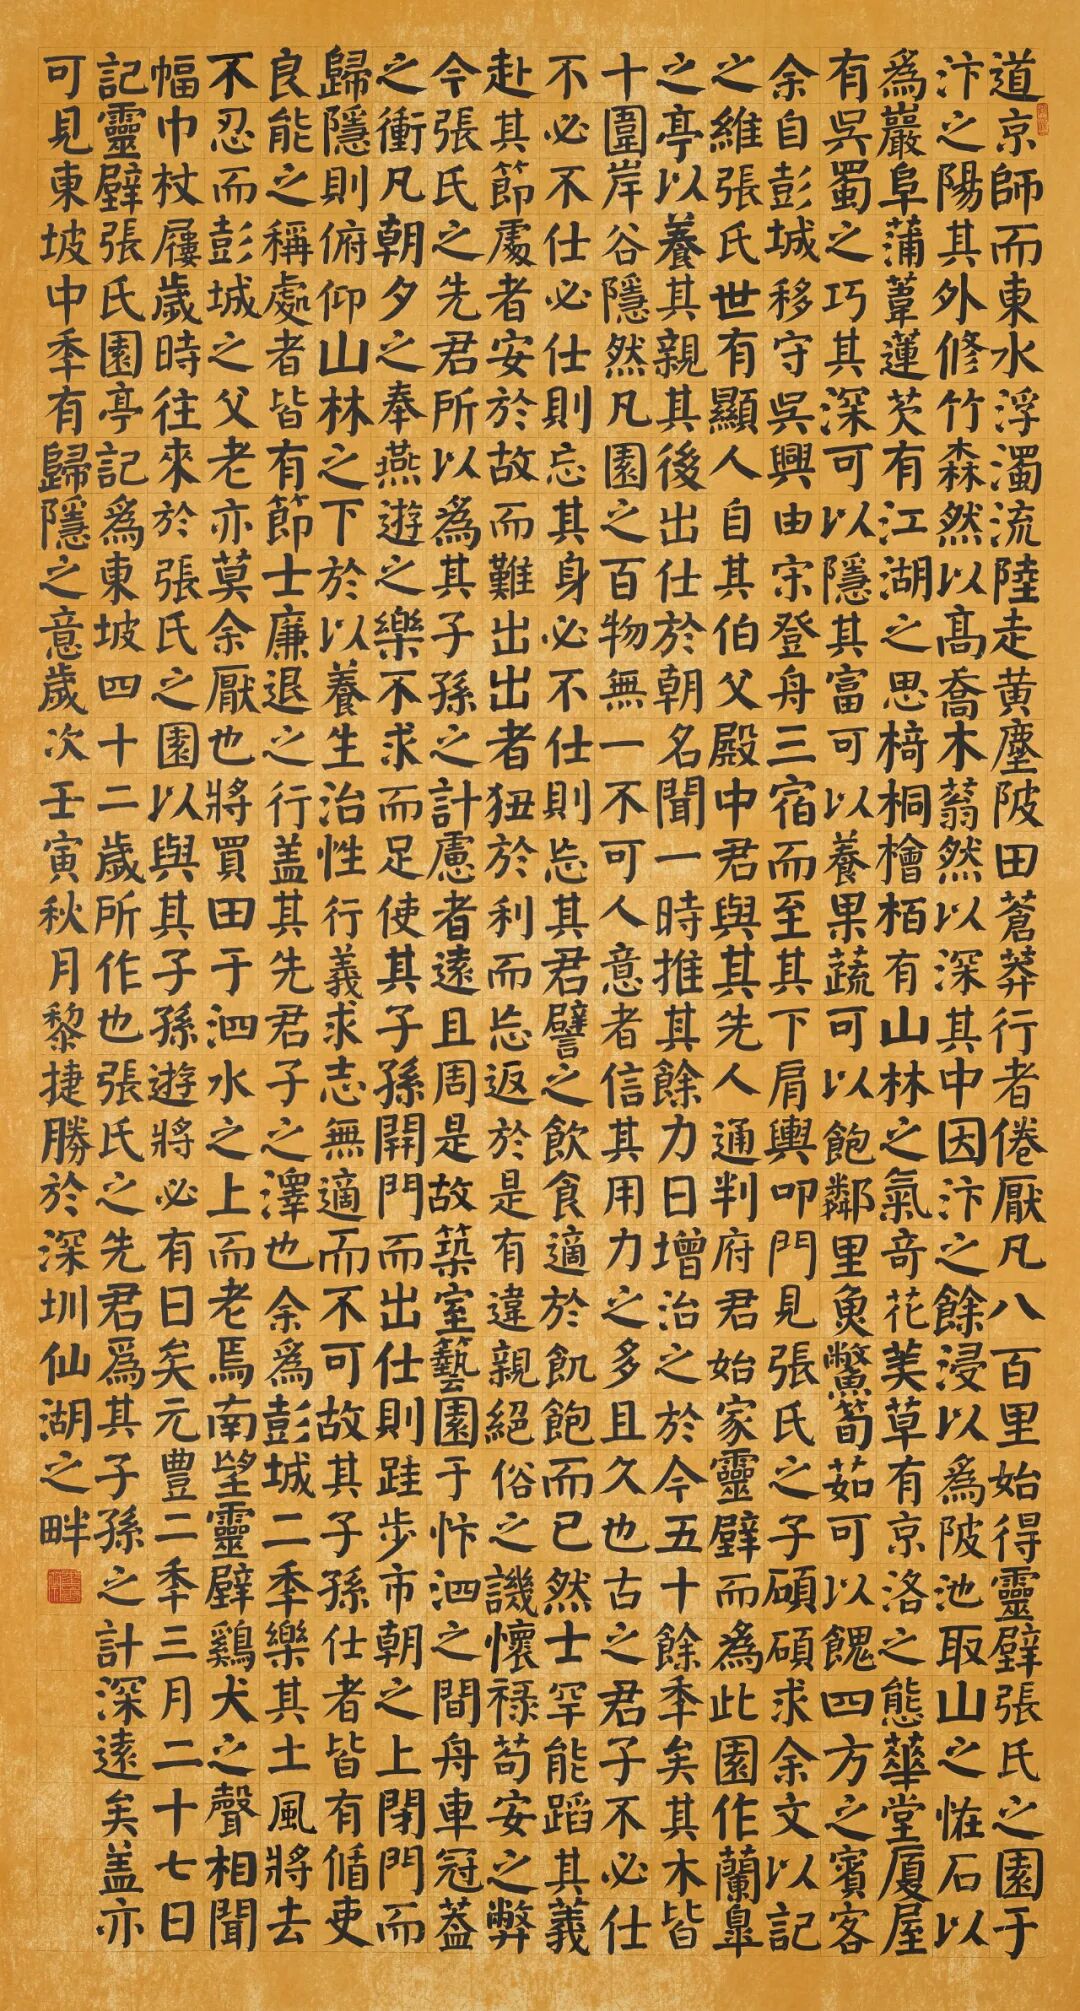 道京師而東水浮濁流陸走黄塵陂田蒼莽行者倦厭凡八百里始得靈壁張氏之園于
汴之陽其外修竹森然以高喬木蓊然以深其中因汴之餘浸以爲陂池取山之怪石以
爲巖阜蒲葦蓮芡有江湖之思椅桐檜栢有山林之氣奇花美草有京洛之態華堂厦屋
有吳蜀之巧其深可以隱其富可以養果蔬可以飽鄰里魚鱉筍茹可以餽四方之賓客
余自彭城移守吳興由宋登舟三宿而至其下肩輿叩門見張氏之子碩碩求余文以記
之維張氏世有顯人自其伯父殿中君與其先人通判府君始家靈壁而爲此園作蘭皐
之亭以養其親其後出仕於朝名聞一時推其餘力日增治之於今五十餘年矣其木皆
十圍岸谷隱然凡園之百物無一不可人意者信其用力之多且久也古之君子不必仕
不必不仕必仕則忘其身必不仕則忘其君譬之飲食適於飢飽而已然士罕能蹈其義
赴其節處者安於故而難出出者狃於利而忘返於是有違親絕俗之譏懷禄苟安之弊
今張氏之先君所以爲其子孫之計慮者遠且周是故築室藝園于汴泗之間舟車冠蓋
之衝凡朝夕之奉燕遊之樂不求而足使其子孫開門而出仕則跬步市朝之上閉門而
歸隱則俯仰山林之下於以養生治性行義求志無適而不可故其子孫仕者皆有循吏
良能之稱處者皆有節士廉退之行盖其先君子之澤也余爲彭城二年樂其土風將去
不忍而彭城之父老亦莫余厭也將買田于泗水之上而老焉南望靈壁鷄犬之聲相聞
幅巾杖屨歲時往來於張氏之園以與其子孫遊將必有日矣元豊二年三月二十七日
記靈壁張氏園亭記爲東坡四十二歲所作也張氏之先君爲其子孫之計深遠矣盖亦
可見東坡中年有歸隱之意歲次壬寅秋月黎捷勝於深圳仙湖之畔